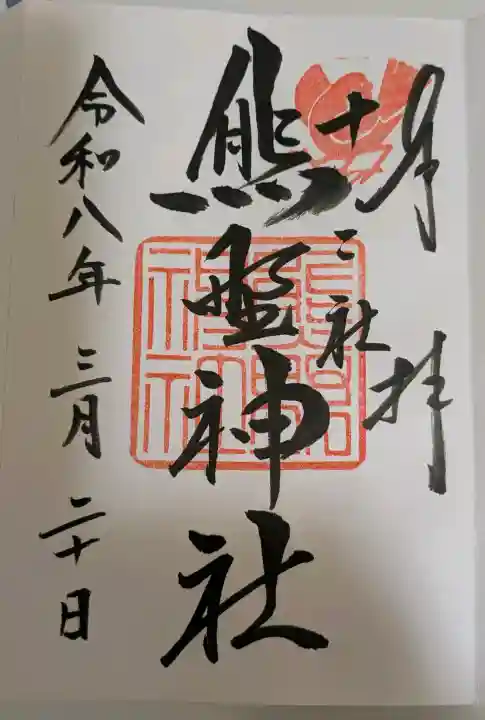 奉拝
十二社
熊埜神社
令和八年三月二十日